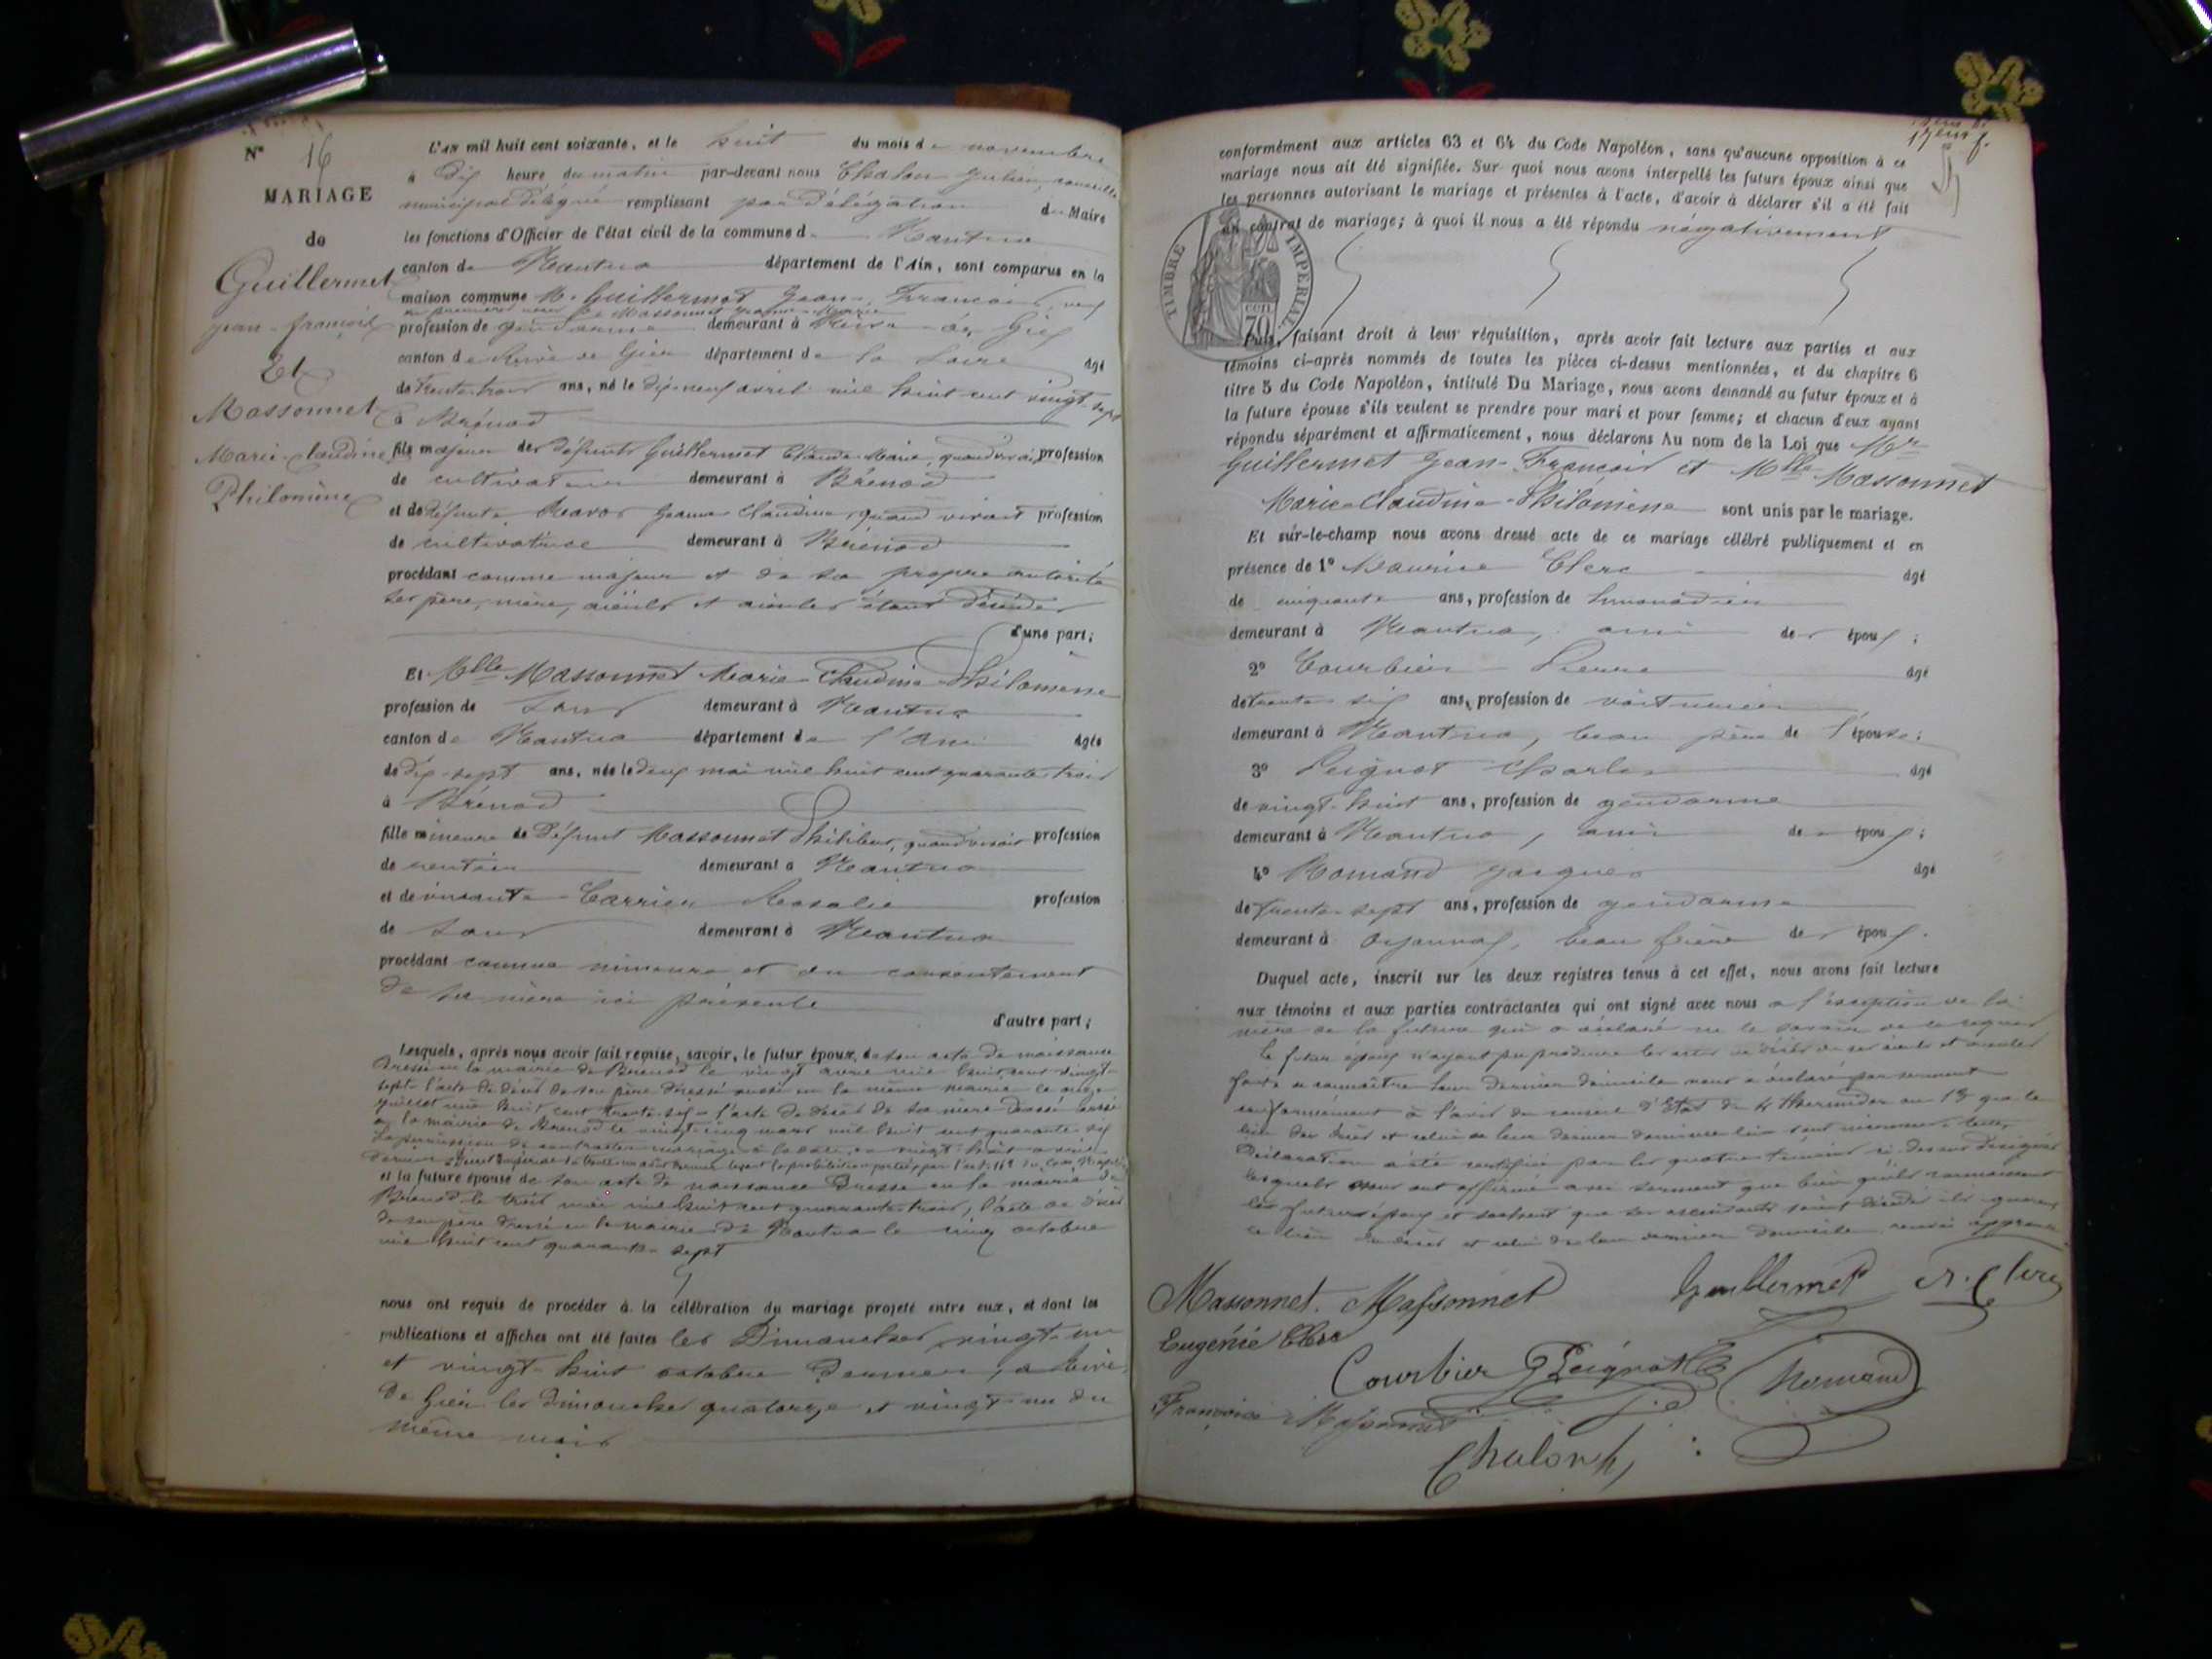 N° 16
MARIAGE
de
Guillermet
jean-françois
Et
Massonnet
Marie-Claudine
Philomène
L'an mil huit cent soixante, et le huit du mois de novembre
à dix heure du matin par-devant nous Chalon Julien, conseiller
municipal délégué remplissant par délégation du Maire
les fonctions d'Officier de l'état civil de la commune d Nantua
canton de Nantua département de l'Ain, sont comparus en la
maison commune M. Guillermet Jean-François, veuf
en premières noces de Massonnet Jeanne-Marie
profession de gendarme demeurant à Rive-de-Gier
canton de Rive de Gier département de la Loire âgé
de trente-trois ans, né le dix-neuf avril mil huit cent vingt-sept
à Brénod
fils majeur des défunts Guillermet Claude-Marie, quand vivait profession
de cultivateur demeurant à Brénod
et de défunte Jeanne Claudine, quand vivait profession
de cultivatrice demeurant à Brénod
procédant comme majeur et de sa propre autorité
ses père, mère, aïeuls et aïeules étant décédés
d'une part;
Et Mlle Massonnet Marie-Claudine-Philomène
profession de sans demeurant à Nantua
canton de Nantua département de l'Ain âgée
de dix-sept ans, née le deux mai mil huit cent quarante-trois
à Brénod
fille mineure de défunt Massonnet Philibert, quand vivait profession
de rentier demeurant à Nantua
et de vivante Carrier Rosalie profession
de sans demeurant à Nantua
procédant comme mineure et du consentement
de sa mère ici présente
d'autre part;
Lesquels, après nous avoir fait remise, savoir, le futur époux, de son acte de naissance
dressé en la mairie de Brénod le vingt avril mil huit cent vingt-
sept l'acte de décès de son père dressé aussi en la même mairie le onze
juillet mil huit cent trente-six - l'acte de décès de sa mère dressé aussi
à la mairie de Brénod le vingt-cinq mars mil huit cent quarante-six
La permission de contracter mariage à la date du vingt-huit
et la future épouse de son acte de naissance dressé en la mairie de
Brénod le trois mai mil huit cent quarante-trois, l'acte de décès
de son père dressé en la mairie de Nantua le cinq octobre
mil huit cent quarante-sept
nous ont requis de procéder à la célébration du mariage projeté entre eux, et dont les
publications et affiches ont été faites les Dimanches vingt-un
et vingt-huit octobre dernier, à Rive
de Gier les dimanches quatorze et vingt-un du
même mois
17
conformément aux articles 63 et 64 du Code Napoléon, sans qu'aucune opposition à ce
mariage nous ait été signifiée. Sur quoi nous avons interpellé les futurs époux ainsi que
les personnes autorisant le mariage et présentes à l'acte, d'avoir à déclarer s'il a été fait
un contrat de mariage; à quoi il nous a été répondu négativement
TIMBRE IMPERIAL
70
Puis, faisant droit à leur réquisition, après avoir fait lecture aux parties et aux
témoins ci-après nommés de toutes les pièces ci-dessus mentionnées, et du chapitre 6
titre 5 du Code Napoléon, intitulé Du Mariage, nous avons demandé au futur époux et à
la future épouse s'ils veulent se prendre pour mari et pour femme; et chacun d'eux ayant
répondu séparément et affirmativement, nous déclarons Au nom de la Loi que Mr
Guillermet Jean-François et Mlle Massonnet
Marie-Claudine-Philomène sont unis par le mariage.
Et sur-le-champ nous avons dressé acte de ce mariage célébré publiquement et en
présence de 1° Maurice Clerc âgé
de cinquante ans, profession de limonadier
demeurant à Nantua, ami des époux;
2° Courbier Pierre âgé
de trente six ans, profession de voiturier
demeurant à Nantua, beau père de l'épouse;
3° Peignot Charles âgé
de vingt-huit ans, profession de gendarme
demeurant à Nantua, ami des époux;
4° Romand Jacques âgé
de trente-sept ans, profession de gendarme
demeurant à Oyonnax, beau frère des époux.
Duquel acte, inscrit sur les deux registres tenus à cet effet, nous avons fait lecture
aux témoins et aux parties contractantes qui ont signé avec nous à l'exception de la
mère de la future qui a déclaré ne le savoir de ce requis
Le futur époux n'ayant pu produire les actes de décès de ses aïeuls et aïeules
faute de connaître leur dernier domicile nous a déclaré par serment
conformément à l'avis du conseil d'Etat du 4 thermidor an 13 que le
lieu du décès et celui de leur dernier domicile lui sont inconnus. Cette
Déclaration a été certifiée par les quatre témoins ci-dessus désignés
lesquels nous ont affirmé avec serment que bien qu'ils connaissent
les futurs époux et sachent que les ascendants soient décédés ils ignorent
le lieu du décès et celui de leur dernier domicile
Massonnet. Massonnet Guillermet M. Clerc
Eugénie Clerc
Courbier Peignot Romand
Françoise Massonnet
Chalon